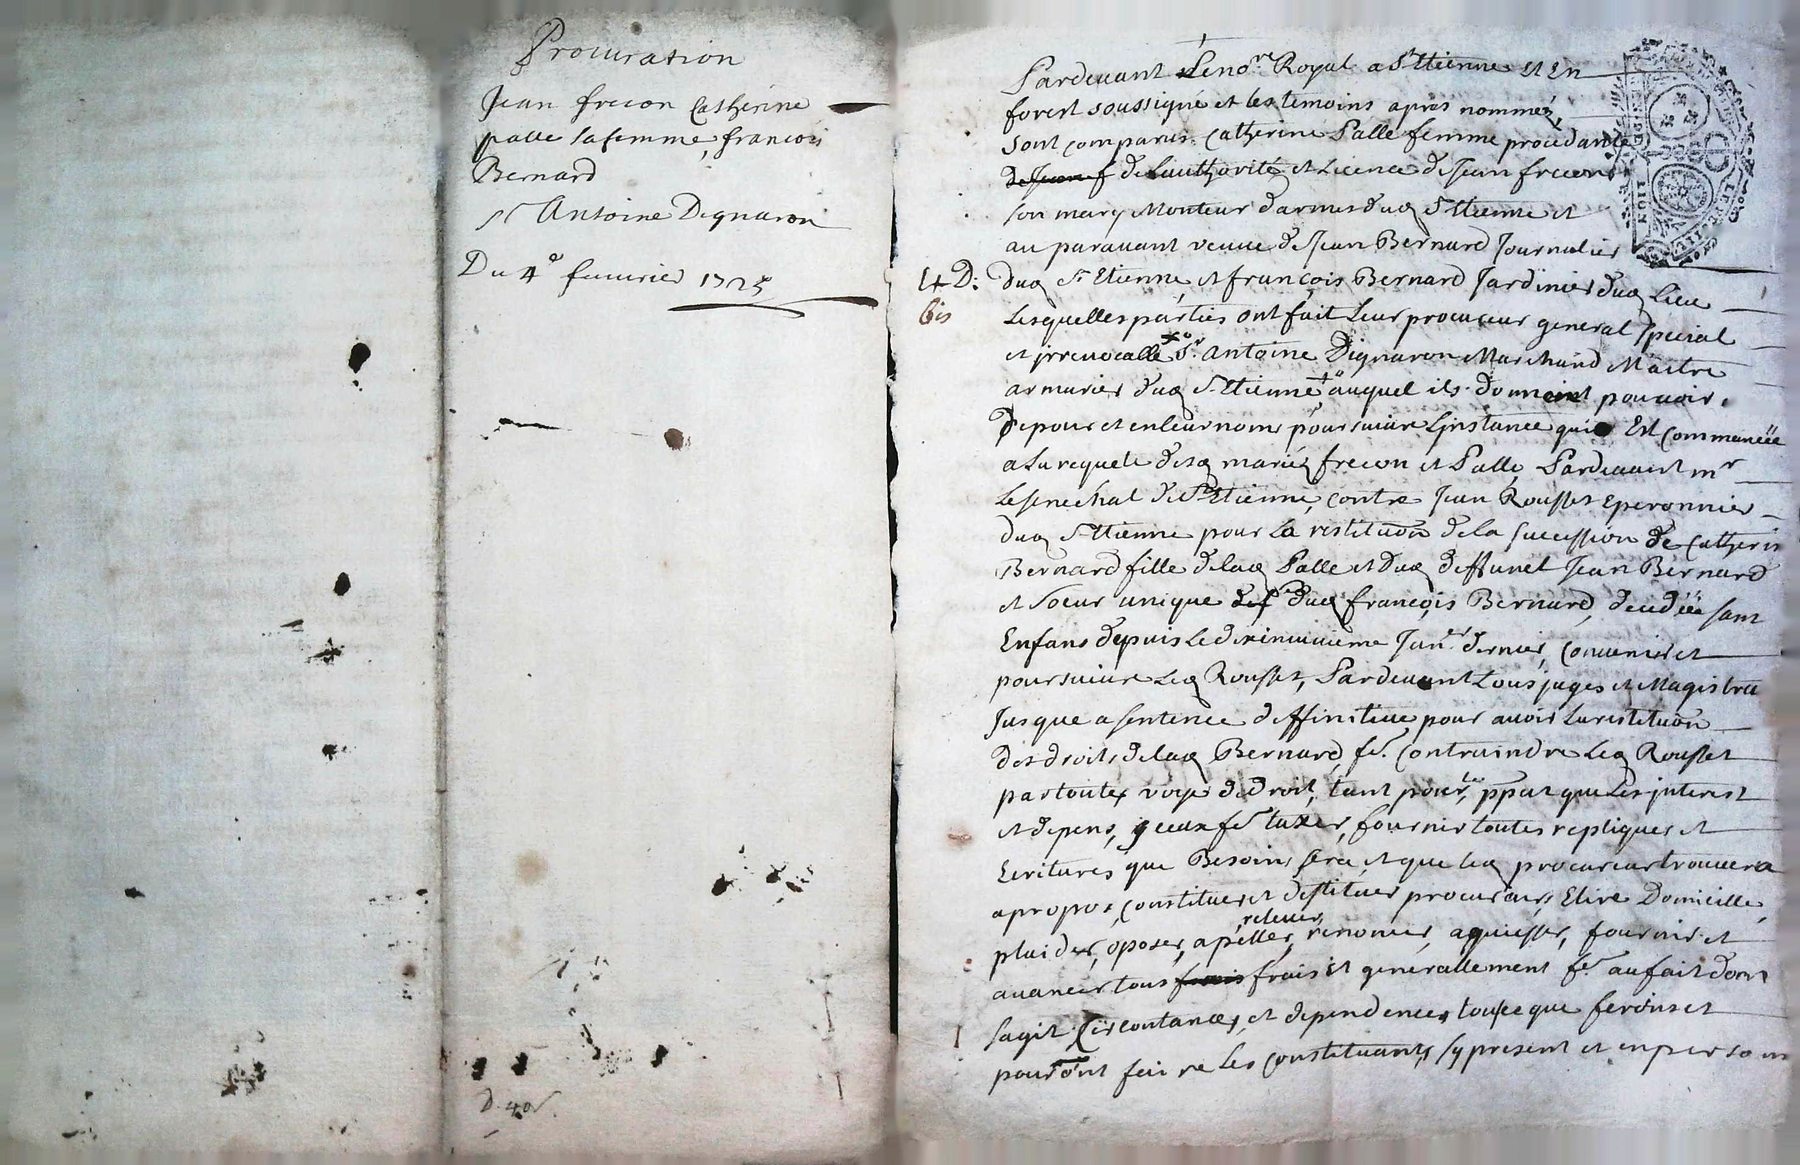 Procuration
Jean frecon Catherine
palle sa femme, francois
Bernard
sr Antoine Dignaron
Du 4e feuurier 1725
D. 40s.
Pardeuant Le nore Royal a St Etienne et En
forest soussigné et les temoins apres nommez
sont comparus Catherine Palle femme procedante
de Lauthorité et Licence de Jean frecon
son mary Monteur darmes dud St Etienne et
au parauant veuue de Jean Bernard Journalier
dud St Etienne, et françois Bernard Jardinier dud Lieu
Lesquelles parties ont fait Leur procureur general special
et jrreuocable Sr. Antoine Dignaron Marchand Maitre
armurier dud St Etienne auquel ils donnent pouuoir
De pour et en leur nom poursuiure Linstance qui Est Commencée
a La requete desd mariez frecon et Palle Pardeuant mr
Le senechal de St Etienne, contre Jean Rousset Eperonnier
dud St Etienne pour La restituon de la succession de Catherin
Bernard fille de lad Palle et dud deffunct Jean Bernard
et Soeur unique dud françois Bernard, decedée sans
Enfans depuis Le dixneuuieme Janer dernier, Conuenir et
poursuiure Led Rousset, Pardeuant tous juges et Magistra
Jusque a sentence deffinitiue pour auoir La restituon
des droits de lad Bernard, fe. Contraindre Led Rousset
par toutes voyes de Droit, tant pour Le ppal que Les jnterest
et depens, yceux fe taxer, fournir toutes repliques et
Ecritures que Besoin sera et que led procureur trouuera
a propos, Constituer et destituer procureurs Elire Domicille,
releuer,
plaider, oposer, apeller, renoncer, aquiesser, fournir et
auancer tous frais et generallement fe au fait dont
sagit Circontances, et dependences tout ce que feroins et
pouront faire Les Constituants sy present et en person
4 D:
6is